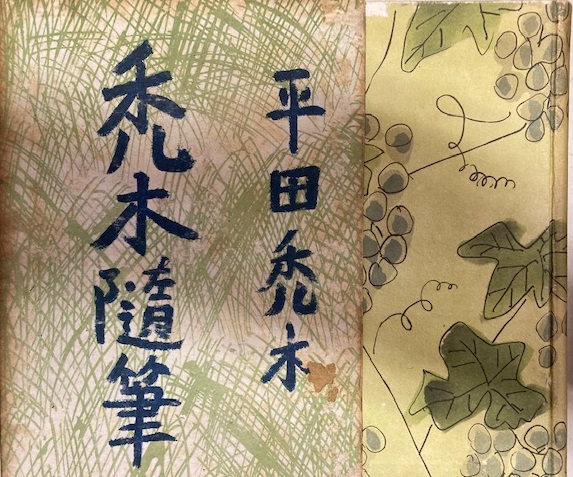 平田禿木
禿木隨筆